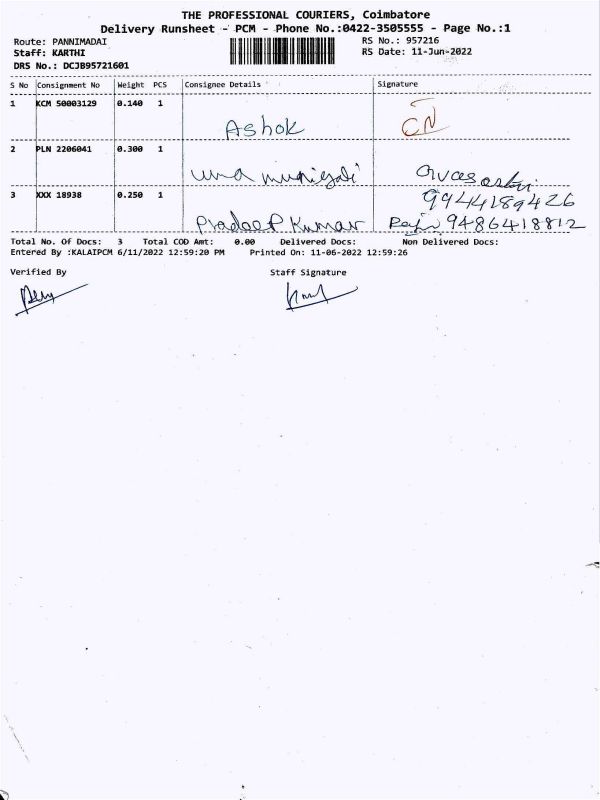 THE PROFESSIONAL COURIERS, Coimbatore
Delivery Runsheet - PCM - Phone No.:0422-3505555 - Page No.:1
Route: PANNIMADAI RS No.: 957216
Staff: KARTHI RS Date: 11-Jun-2022
DRS No.: DCJB95721601
S No Consignment No Weight PCS Consignee Details Signature
1 KCM 50003129 0.140 1
Ashok CN
2 PLN 2206041 0.300 1
uma
9944189426
3 XXX 18938 0.250 1
PradeeP Kumar 9486418812
Total No. Of Docs: 3 Total COD Amt: 0.00 Delivered Docs: Non Delivered Docs:
Entered By :KALAIPCM 6/11/2022 12:59:20 PM Printed On: 11-06-2022 12:59:26
Verified By Staff Signature